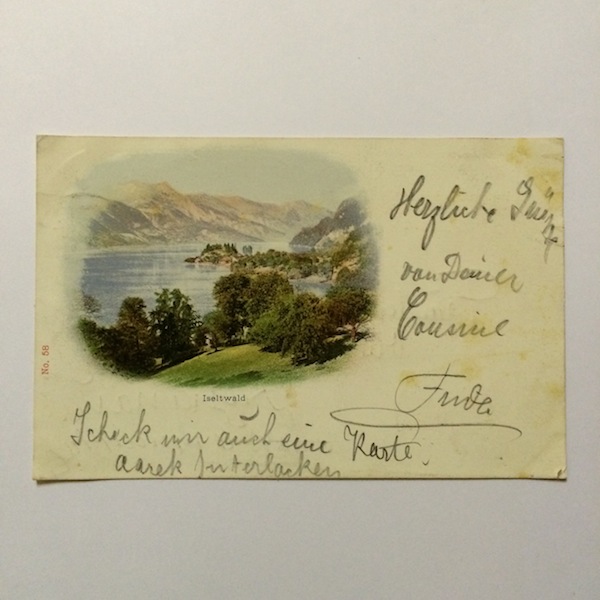 Herzliche Grüße
von Deiner
Cousine
Frida
No. 58
Iseltwald
Schick mir auch eine Karte.
Interlacken